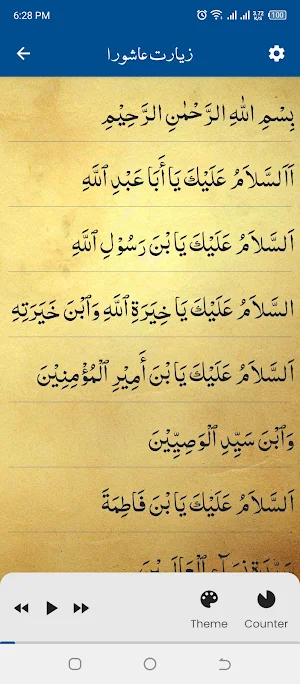 6:28 PM
3.72 K/s 100
زیارت عاشورا
بِسْمِ اللّٰهِ الرَّحْمٰنِ الرَّحِيْمِ
اَلسَّلاَمُ عَلَيْكَ يَا أَبَا عَبْدِ ٱللَّهِ
اَلسَّلاَمُ عَلَيْكَ يَا بْنَ رَسُوْلِ ٱللَّهِ
السَّلاَمُ عَلَيْكَ يَا خِيَرَةِ ٱللَّهِ وَٱبْنَ خَيَرَتِهِ
اَلسَّلاَمُ عَلَيْكَ يَا بْنَ أَمِيْرِ ٱلْمُؤْمِنِيْنَ
وَٱبْنَ سَيِّدِ ٱلْوَصِيِّيْنَ
اَلسَّلاَمُ عَلَيْكَ يَا بْنَ فَاطِمَةَ
Theme Counter